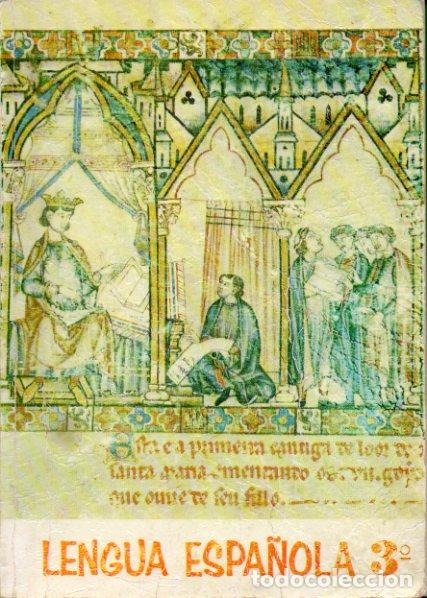 Esta e a primeira cantiga de loor de
santa maria ementando os .vii. goyos
que ouue de seu fillo.
LENGUA ESPAÑOLA 3º
todocoleccion